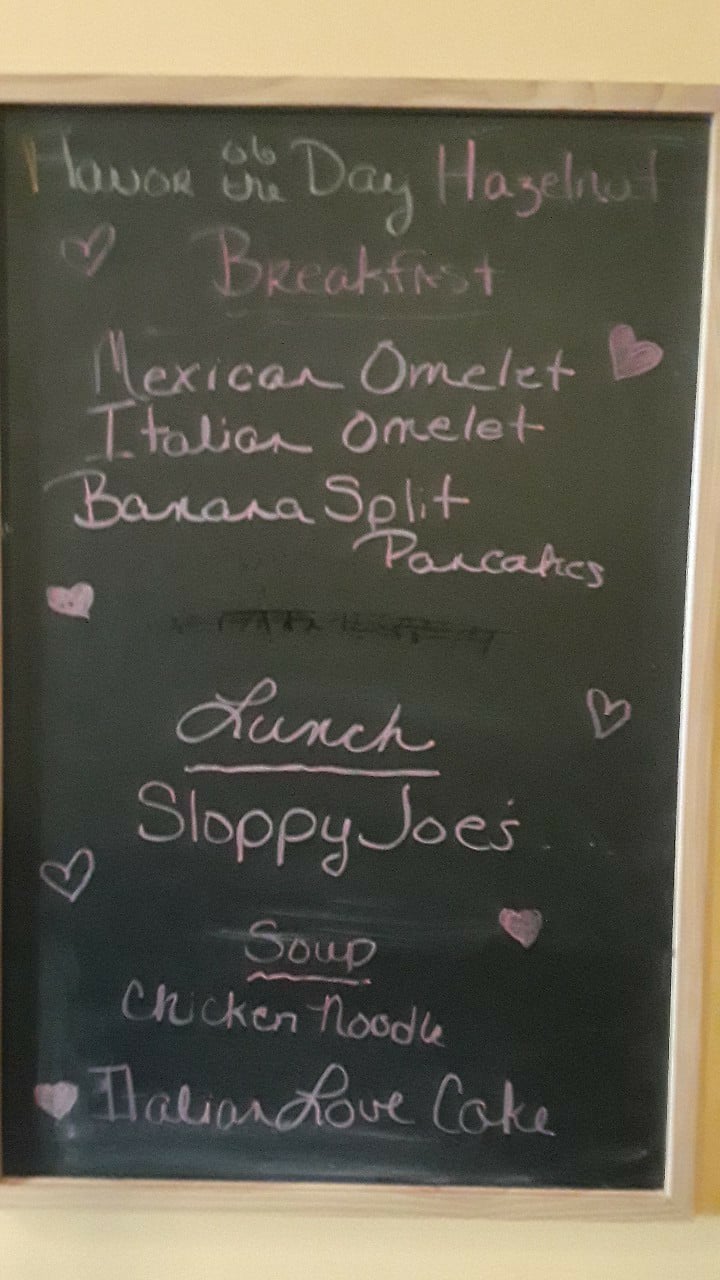 Flavor of the Day Hazelnut
Breakfast
Mexican Omelet
Italian Omelet
Banana Split
Pancakes
Lunch
Sloppy Joe's
Soup
Chicken Noodle
Italian Love Cake